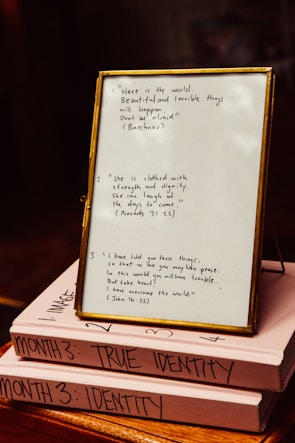 1 "Here is the world.
Beautiful and terrible things
will happen.
Dont be afraid"
(Buechner)
2. "She is clothed with
strength and dignity
she can laugh at
the days to come."
(Proverbs 31:25)
3 "I have told you these things,
so that in me you may have peace.
In this world you will have trouble.
But take heart!
I have overcome the world"
(John 16:33)
1. IMAGE
2
3
4
MONTH 3: TRUE IDENTITY
MONTH 3: IDENTITY